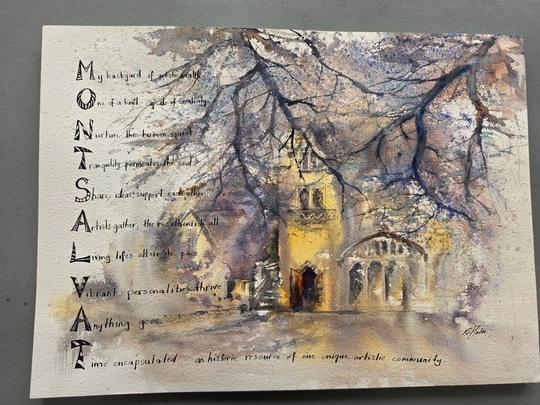 My backyard of artistic wealth
One of a kind, of creativity
Nurture the human spirit
Tranquility permeates the soul
Share ideas, support each other
Artists gather, the enrich all
Living life's alternate pace
Vibrant personalities thrive
Anything goes
Time encapsulated - an historic resource of one unique artistic community.